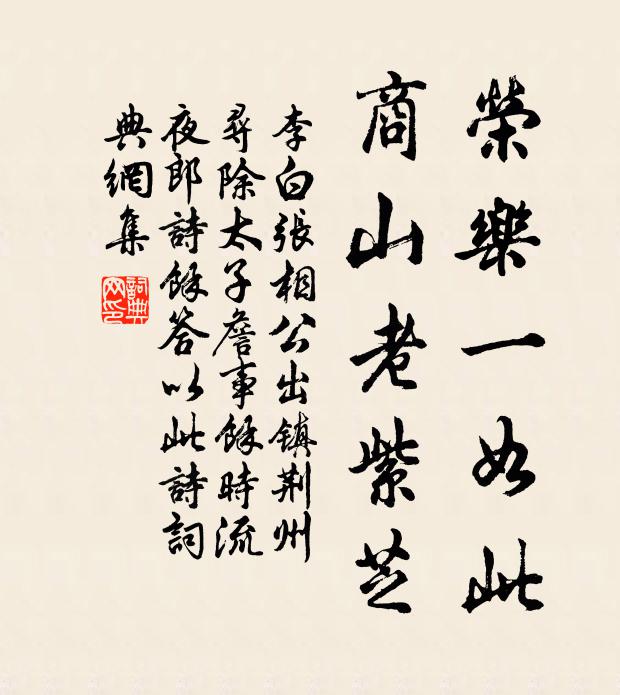 榮樂一如此
商山老紫芝
李白張相公出鎮荊州
尋除太子詹事餘時流
夜郎詩餘答以此詩詞
典網集
詞典
网印